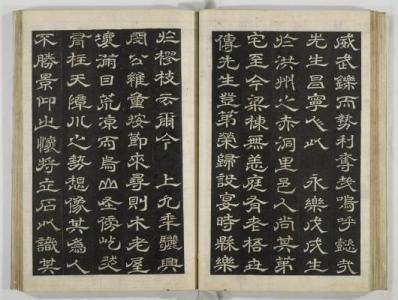 威武鑠而勢利奪矣嗚呼懿哉
先生昌寧心此　永樂戊戌生
於洪州之赤洞里邑人尚其第
宅至今梁棟無恙庭有老梧世
傳先生登第榮歸設宴時縣樂
於樛枝云爾今　上九年驪興
閔公維重按節來尋則木老屋
壞滿目荒凉而烏山岌𡾰此淡
有柱天障川之勢想像其爲人
不勝景仰之懷將立石以識其